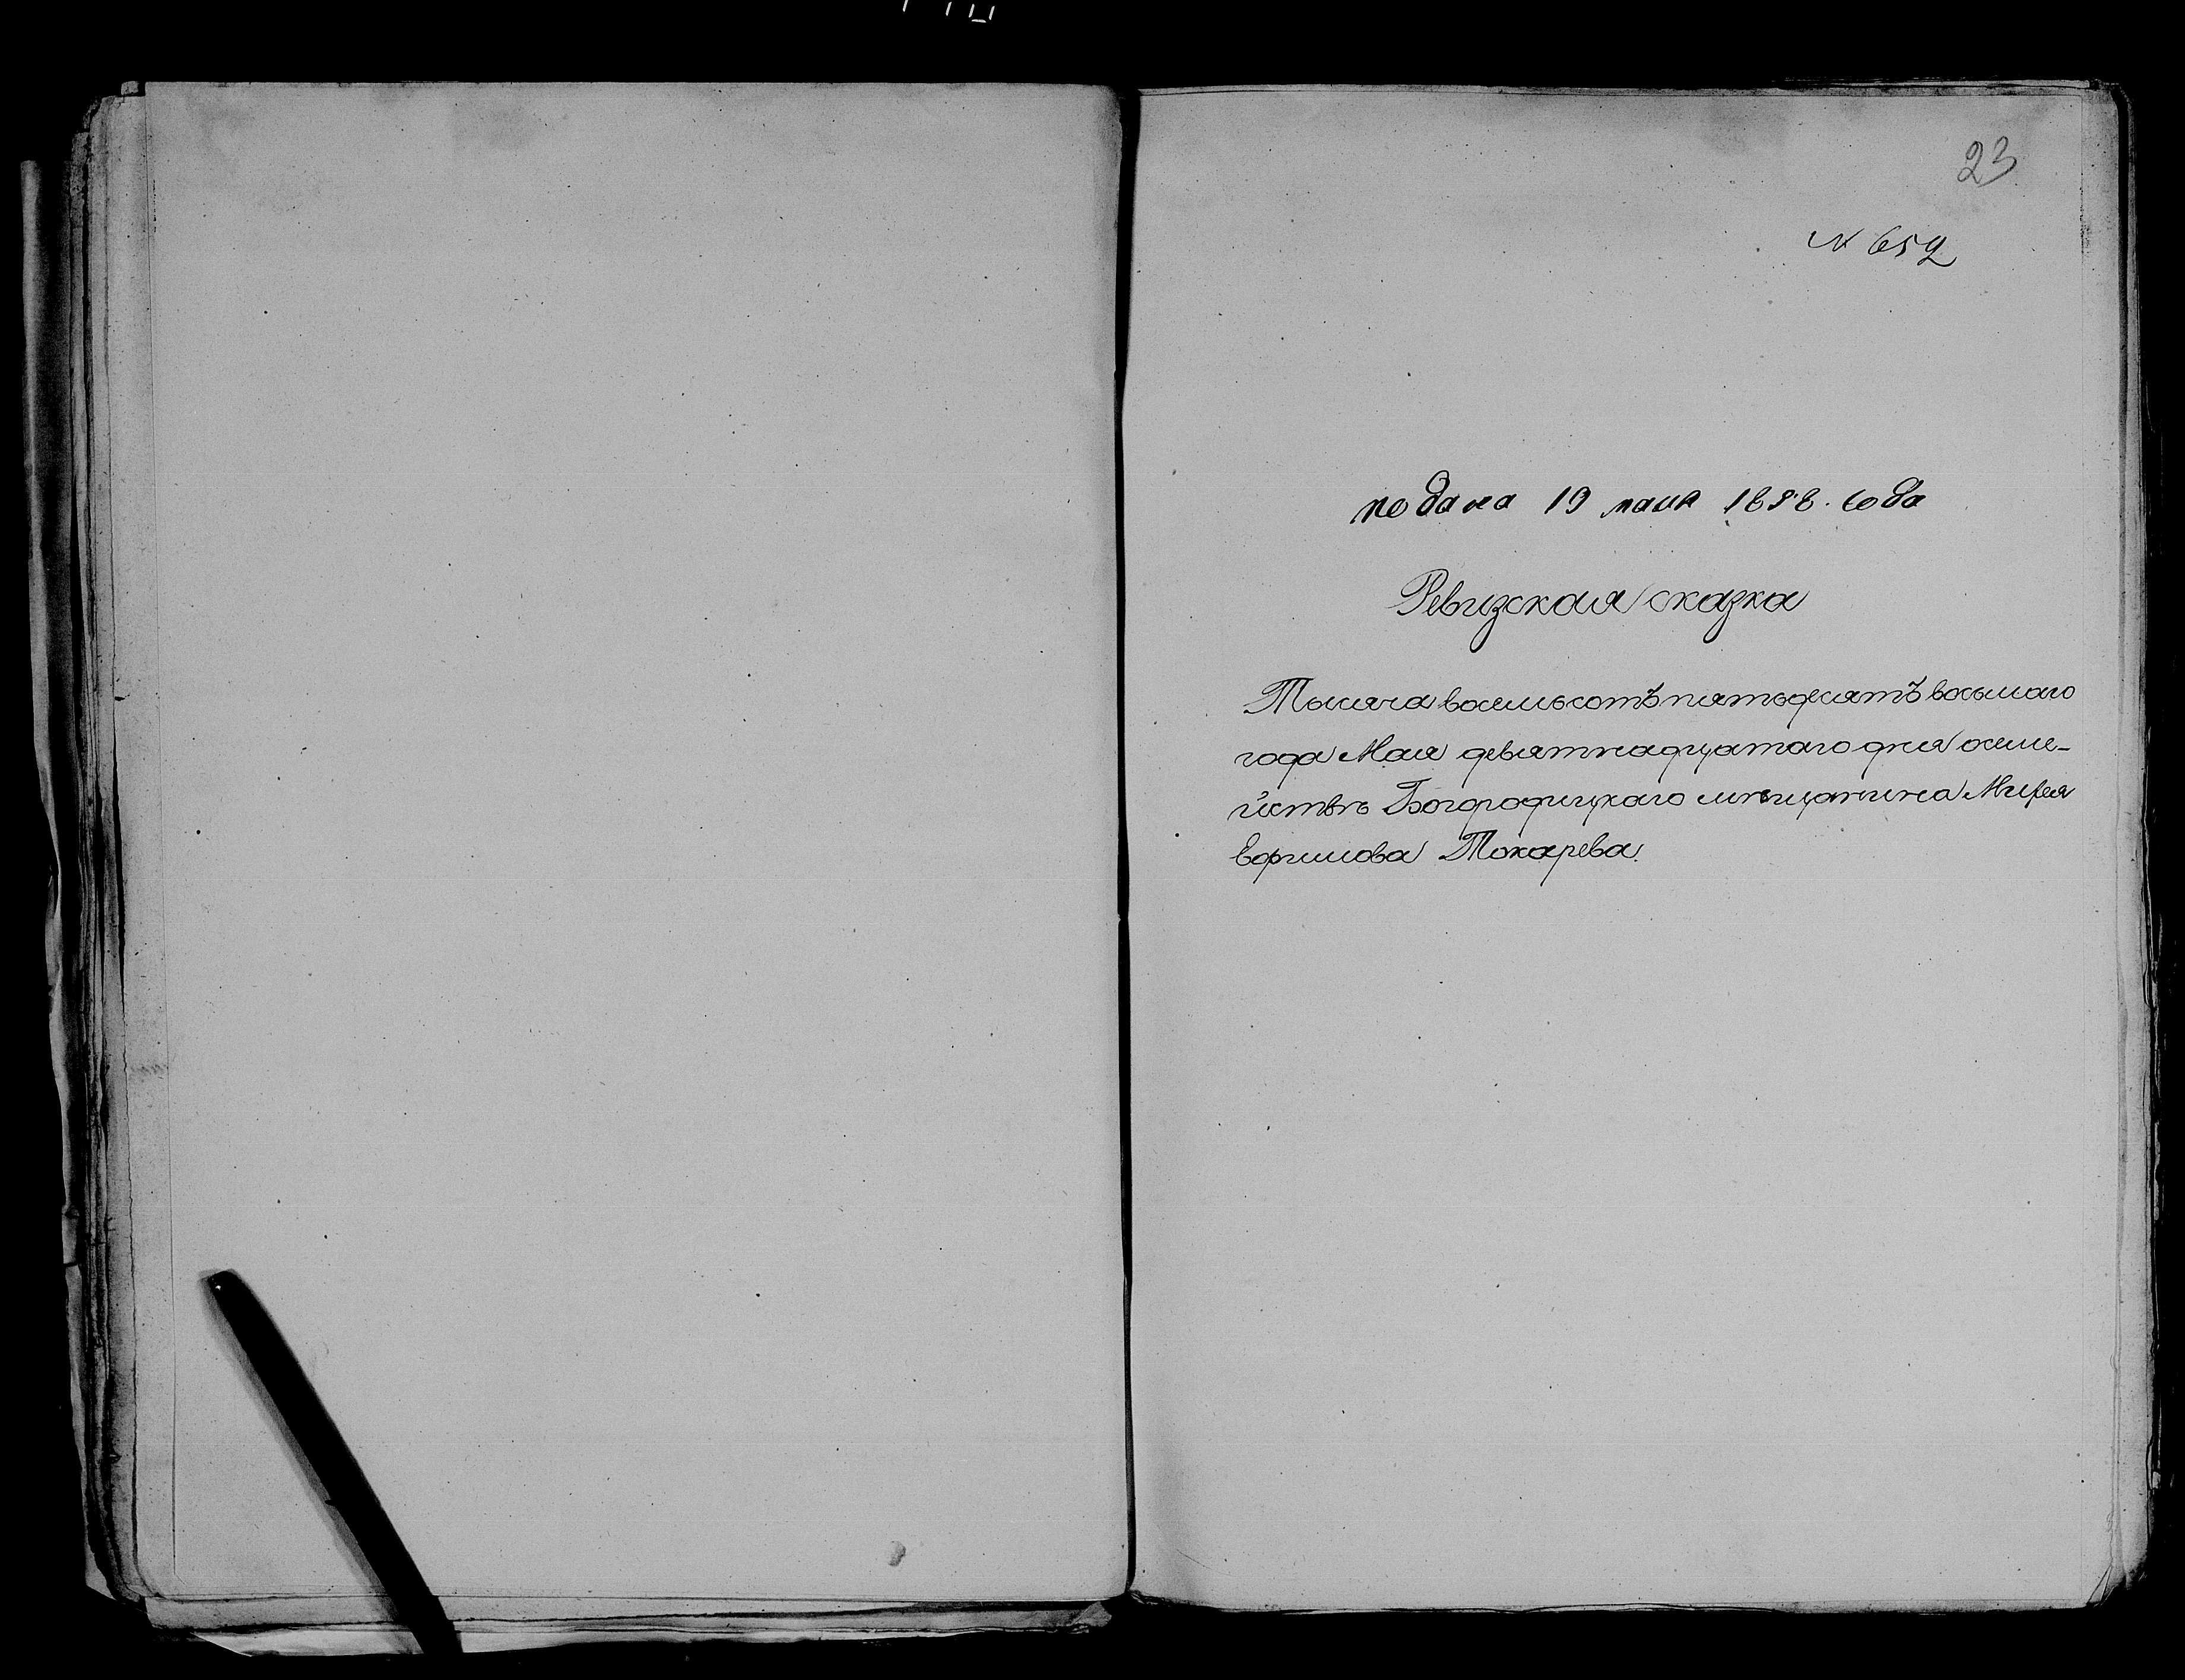 23
№ 652
подана 19 мaiя 1858. года
Ревизская сказка
Тысяча восемьсотъ пятьдесятъ восьмаго
года Мая девятнадцатаго дня осеме-
йствѣ Богородицкаго мѣщанина
Ефимова Токарева.